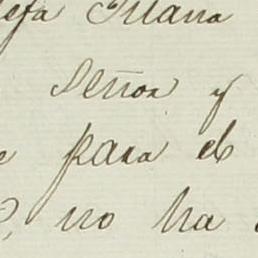 Juana
Señor y
para el
no ha